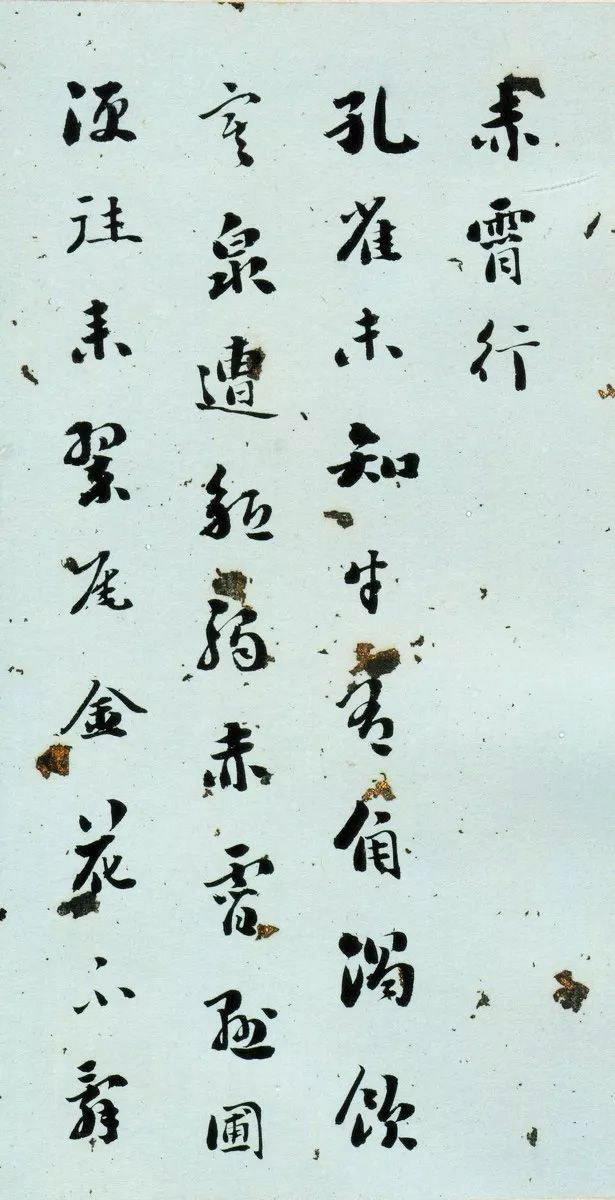 赤霄行
孔雀未知牛有角渴飲
寒泉遭觝觸赤霄懸圃
湏往来翠尾金花不辭